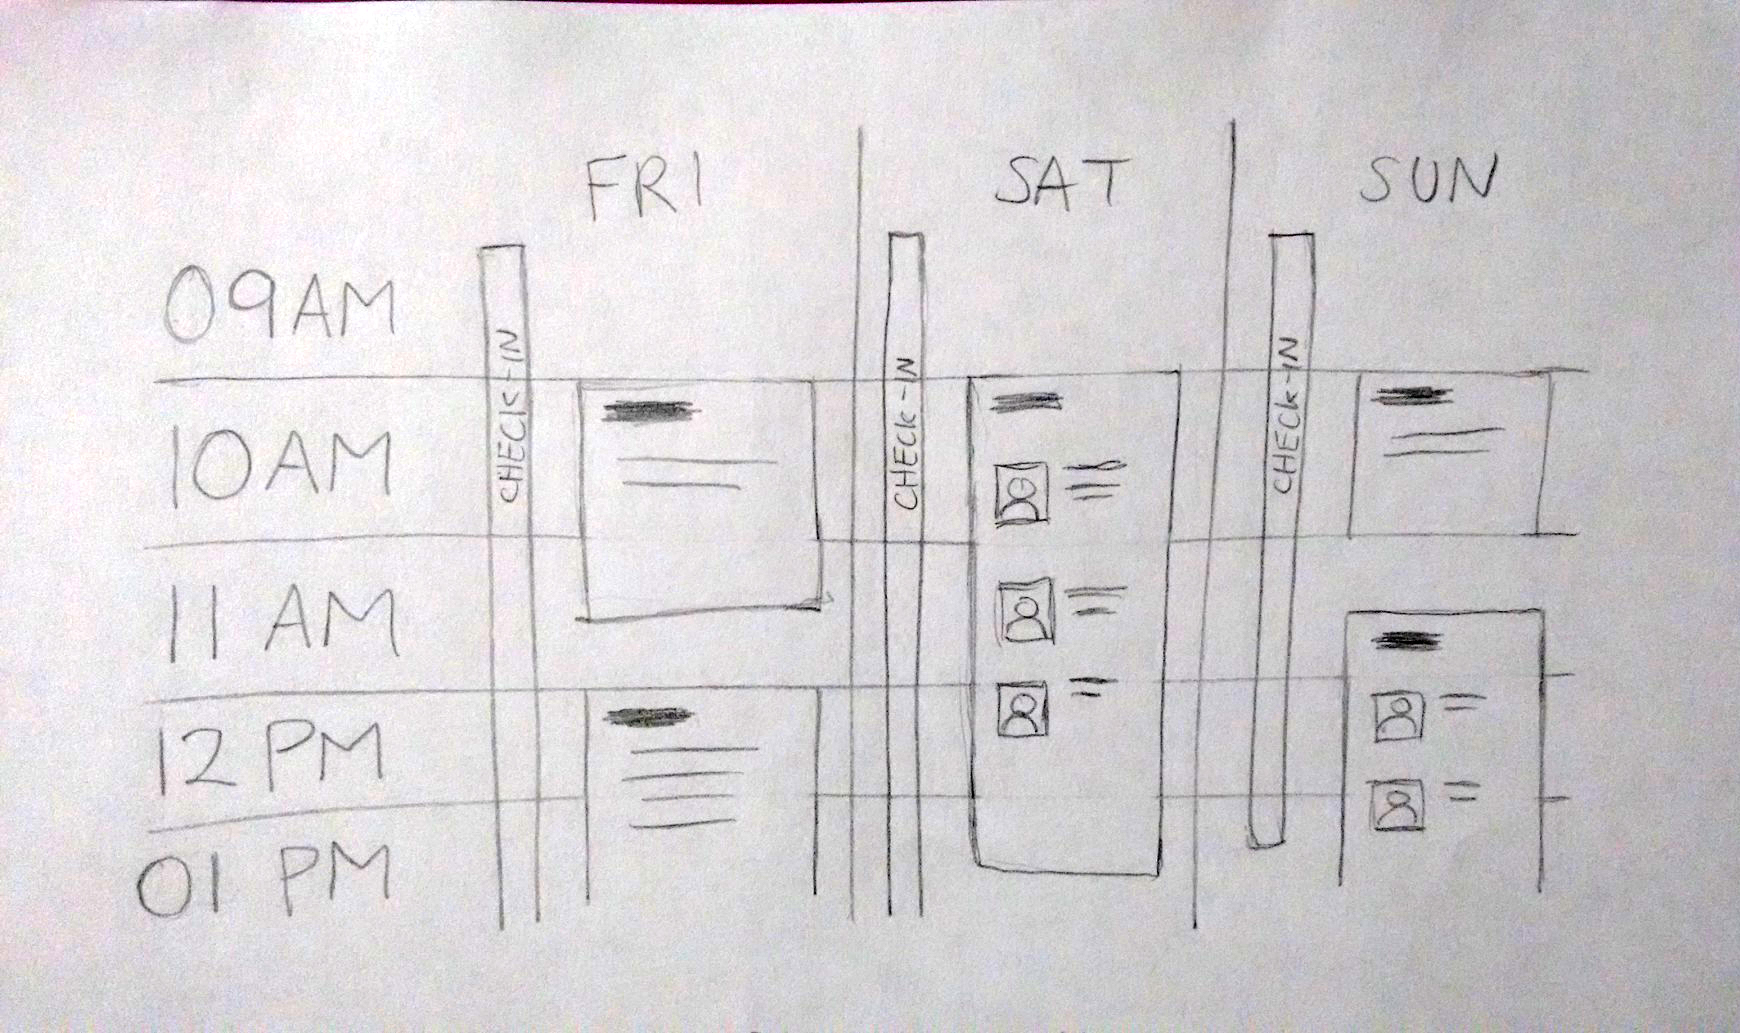 FRI SAT SUN
09AM
10AM
11 AM
12 PM
01 PM
CHECK-IN
CHECK-IN
CHECK-IN